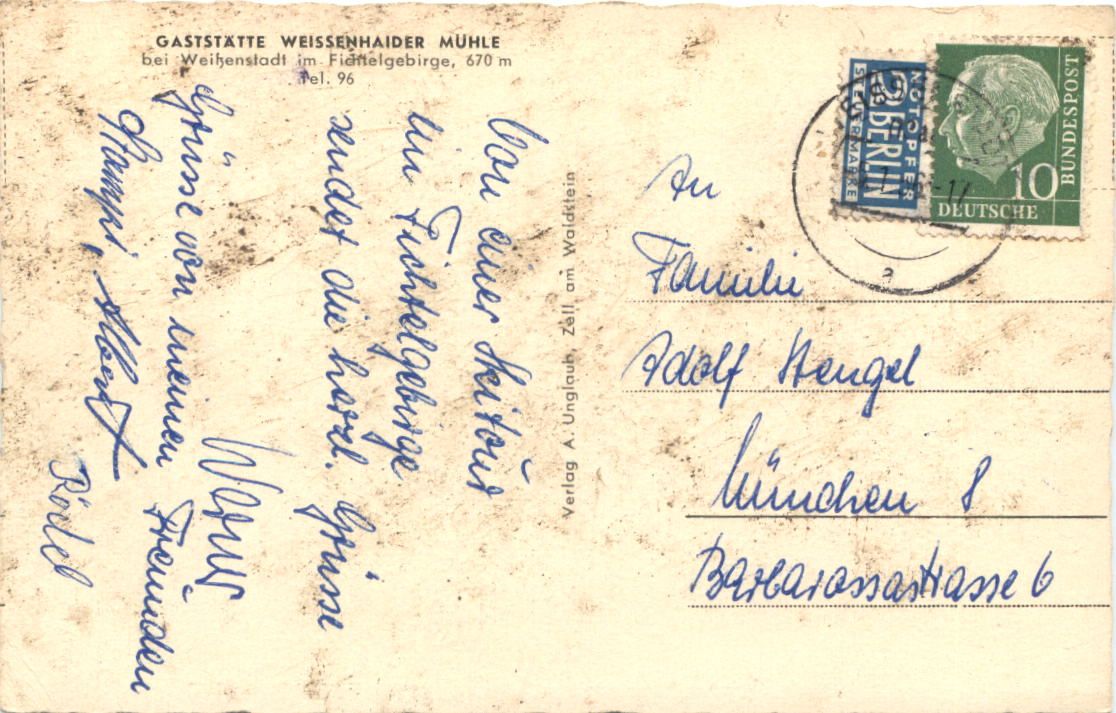 GASTSTÄTTE WEISSENHAIDER MÜHLE
bei Weißenstadt im Fichtelgebirge, 670 m
Tel. 96
Von einer Skitour
im Fichtelgebirge
sendet die herzl. Grüsse
Werner
Grüsse von meinen Freunden
Albert
Rödel
Verlag A. Unglaub, Zell am Waldstein
NOTOPFER
2 BERLIN
STEUERMARKE
10
DEUTSCHE
BUNDESPOST
a
An
Familie
Adolf Stengel
München 8
Barbarossastrasse 6